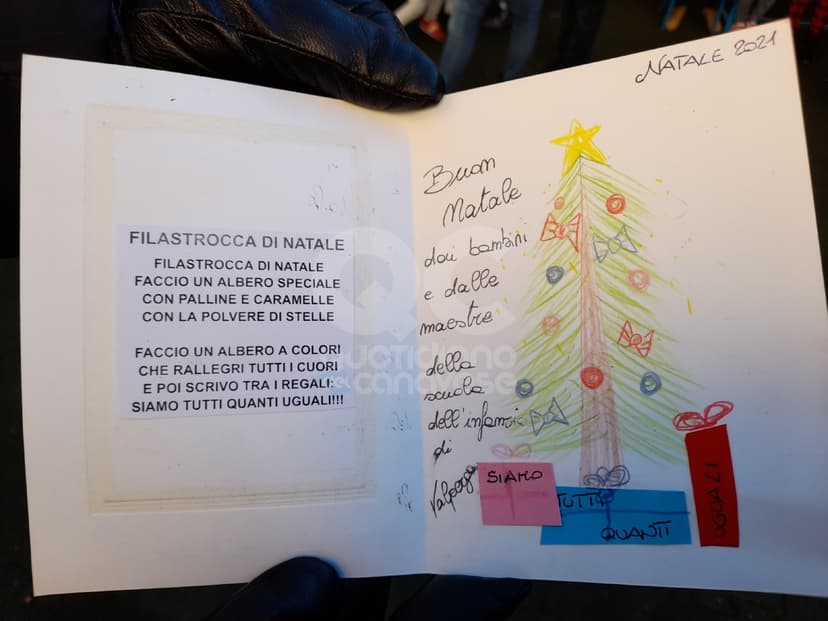 FILASTROCCA DI NATALE
FILASTROCCA DI NATALE
FACCIO UN ALBERO SPECIALE
CON PALLINE E CARAMELLE
CON LA POLVERE DI STELLE
FACCIO UN ALBERO A COLORI
CHE RALLEGRI TUTTI I CUORI
E POI SCRIVO TRA I REGALI:
SIAMO TUTTI QUANTI UGUALI!!!
NATALE 2021
Buon
Natale
dai bambini
e dalle
maestre
della
scuola
dell'infanzia
di
Valperga
SIAMO
TUTTI
QUANTI
UGUALI
QC
QUOTIDIANO
DEL CANAVESE